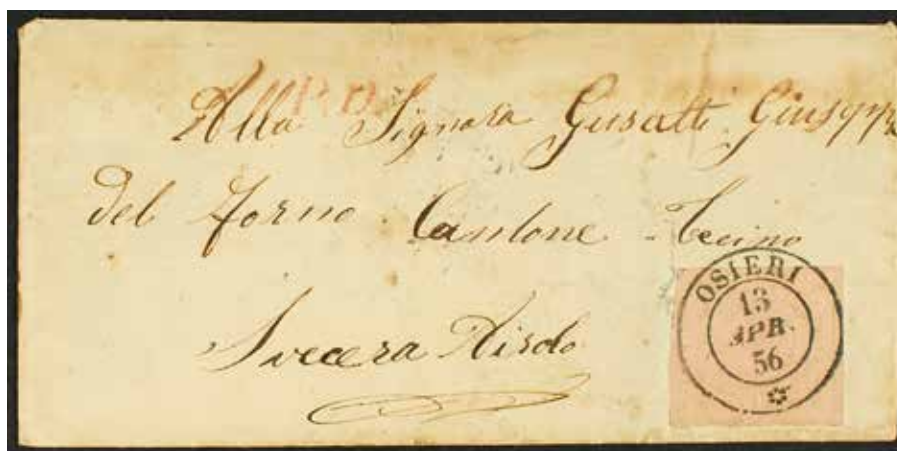 P.D.
Alla Signora Gusatti Giusepp
Del Forno Cantone Tecino
Svecera Airolo
OSIERI
13
APR.
56